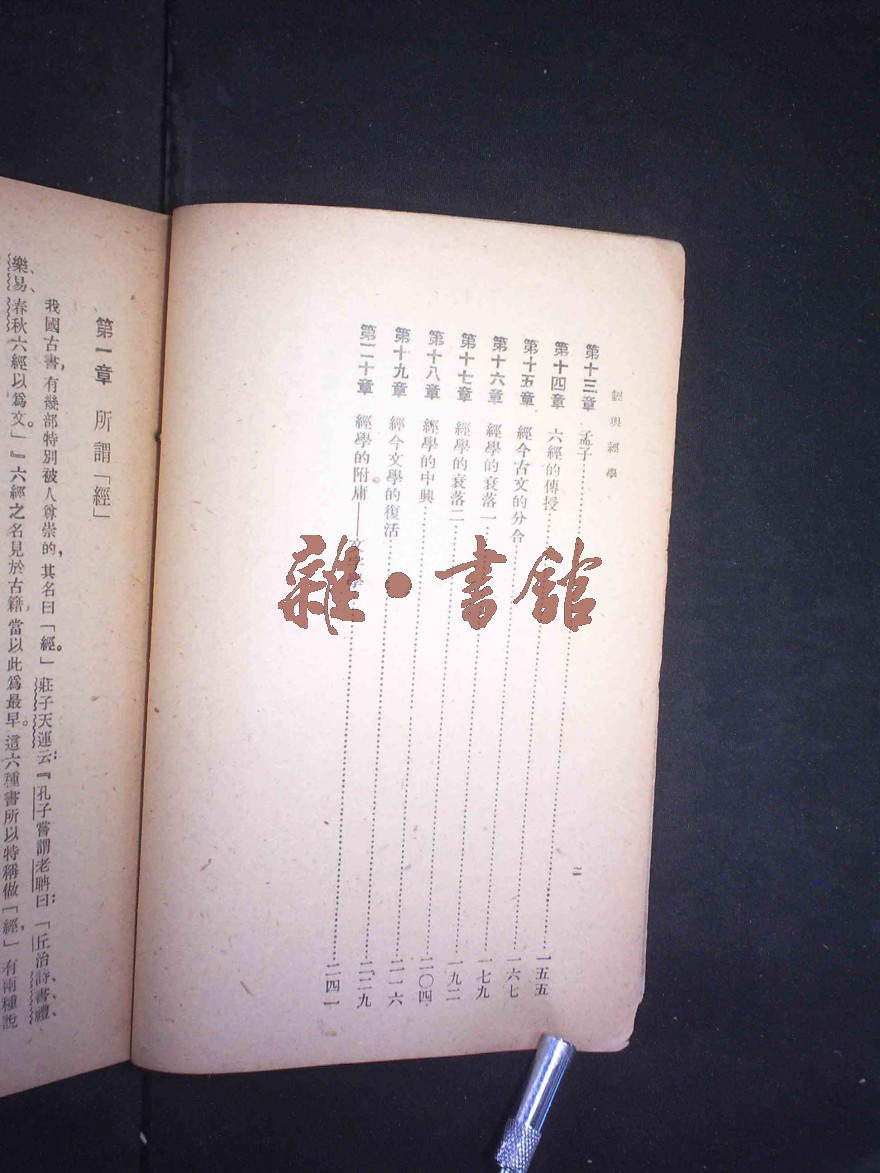 經與經學
二
第十三章　孟子……一五五
第十四章　六經的傳授……一六七
第十五章　經今古文的分合……一七九
第十六章　經學的衰落一……一九二
第十七章　經學的衰落二……二〇四
第十八章　經學的中興……二一六
第十九章　經今文學的復活……二二九
第二十章　經學的附庸——文字學……二四一
雜·書館
第一章　所謂「經」
我國古書，有幾部特別被人尊崇的，其名曰「經。」莊子天運云：『孔子嘗謂老聃曰：「丘治詩、書、禮、
樂、易、春秋六經以爲文。」』六經之名見於古籍，當以此爲最早。這六種書所以特稱做「經，」有兩種說